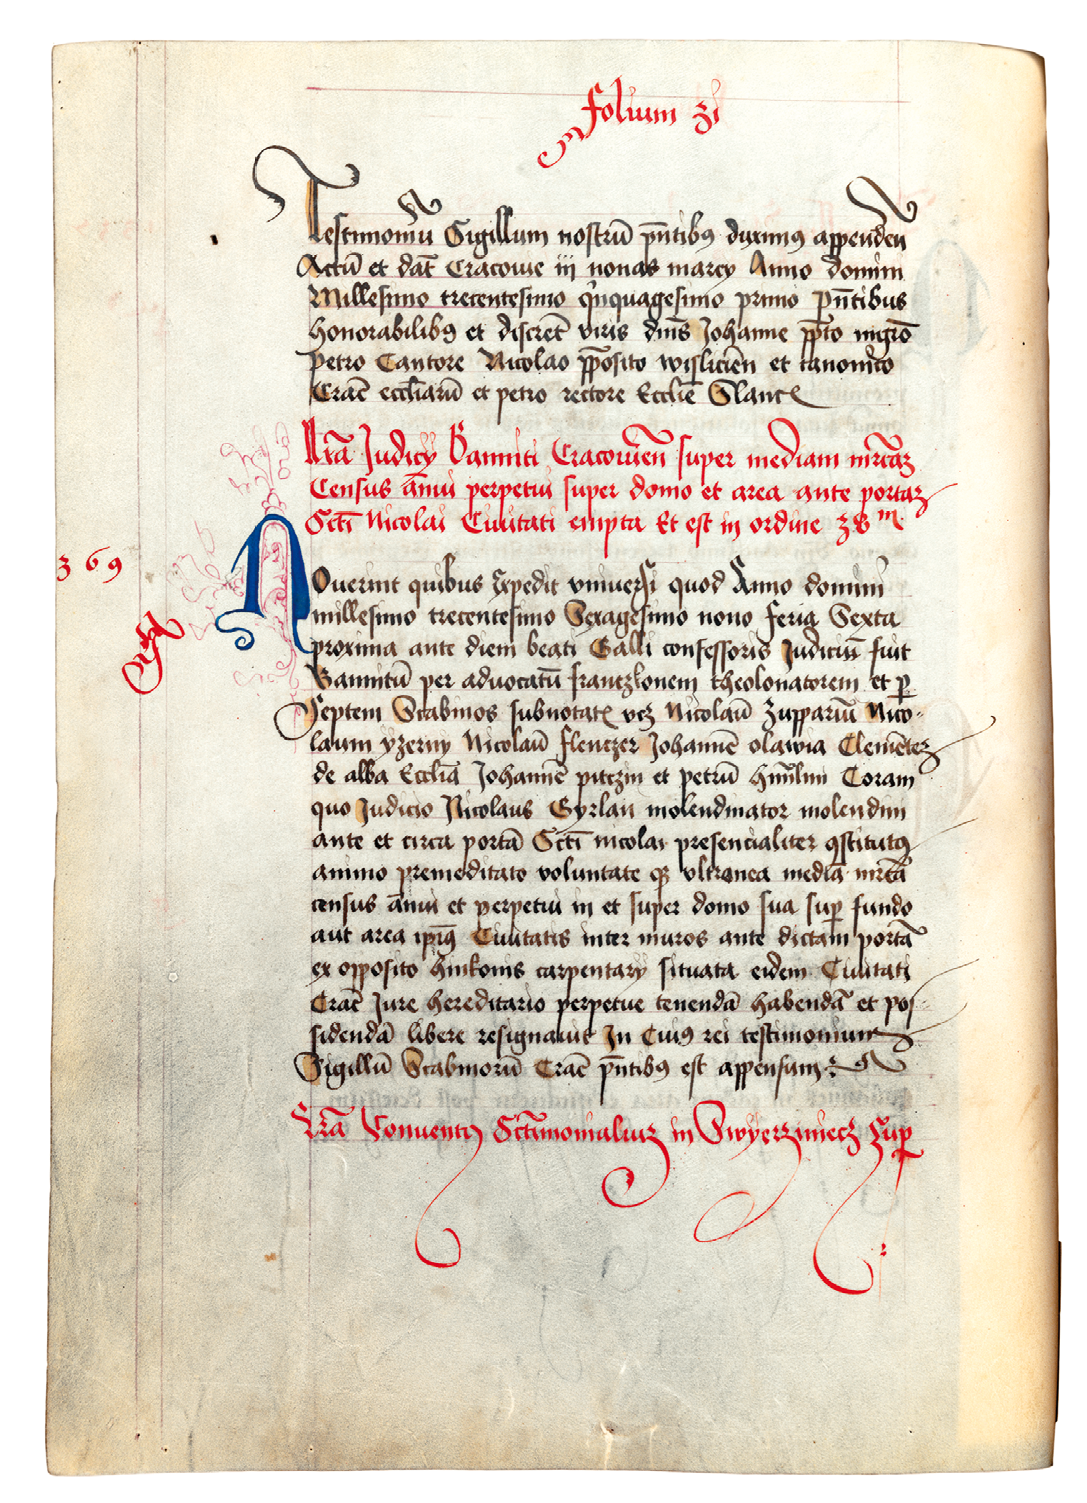 folium 31
Testimoniu Sigillum nostru pntibus duximus appenden
Actu et dat Cracovie iij nonas marcij Anno domini
Millesimo trecentesimo quinquagesimo primo pntibus
honorabilibus et discret viris dnis Johanne ppto nigro
petro Cantore Nicolao ppposito wislicien et canonico
Crac eccliaru et petro rectore Ecclie
Lra Judicij Banniti Cracovien super mediam mrcam
Census annui perpetui super domo et area ante portam
Scti Nicolai Civitati empta Et est in ordine 38m
369
Noverint quibus Expedit universi quod Anno domini
millesimo trecentesimo Sexagesimo nono feria Sexta
proxima ante diem beati Galli confessoris Judiciu fuit
Bannitu per advocatu frantzkonem theolonatorem et p
Septem Scabinos subnotat vcz Nicolau Zuppariu Nico-
laum Nicolau Johanne olawia Clemente
de alba Ecclia Johanne putczin et petru Coram
quo Judicio Nicolaus Gyrlan molendinator molendini
ante et circa porta Scti nicolai presencialiter constitutus
animo premeditato voluntate que ultronea media mrca
census annui et perpetui in et super domo sua sup fundo
aut area ipius Civitatis inter muros ante dictam porta
ex opposito hinkonis carpentarij situata eidem Civitati
Crac Jure hereditario perpetue tenenda habenda et pos-
sidenda libere resignavit In Cuius rei testimonium
Sigillu Scabinoru Crac pntibus est appensum
Lra Conventus Sctimonialium in Swyerziniecz Sup